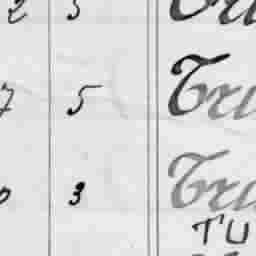 2 5 Tru
7 5 Tru
0 3 Tru
TU